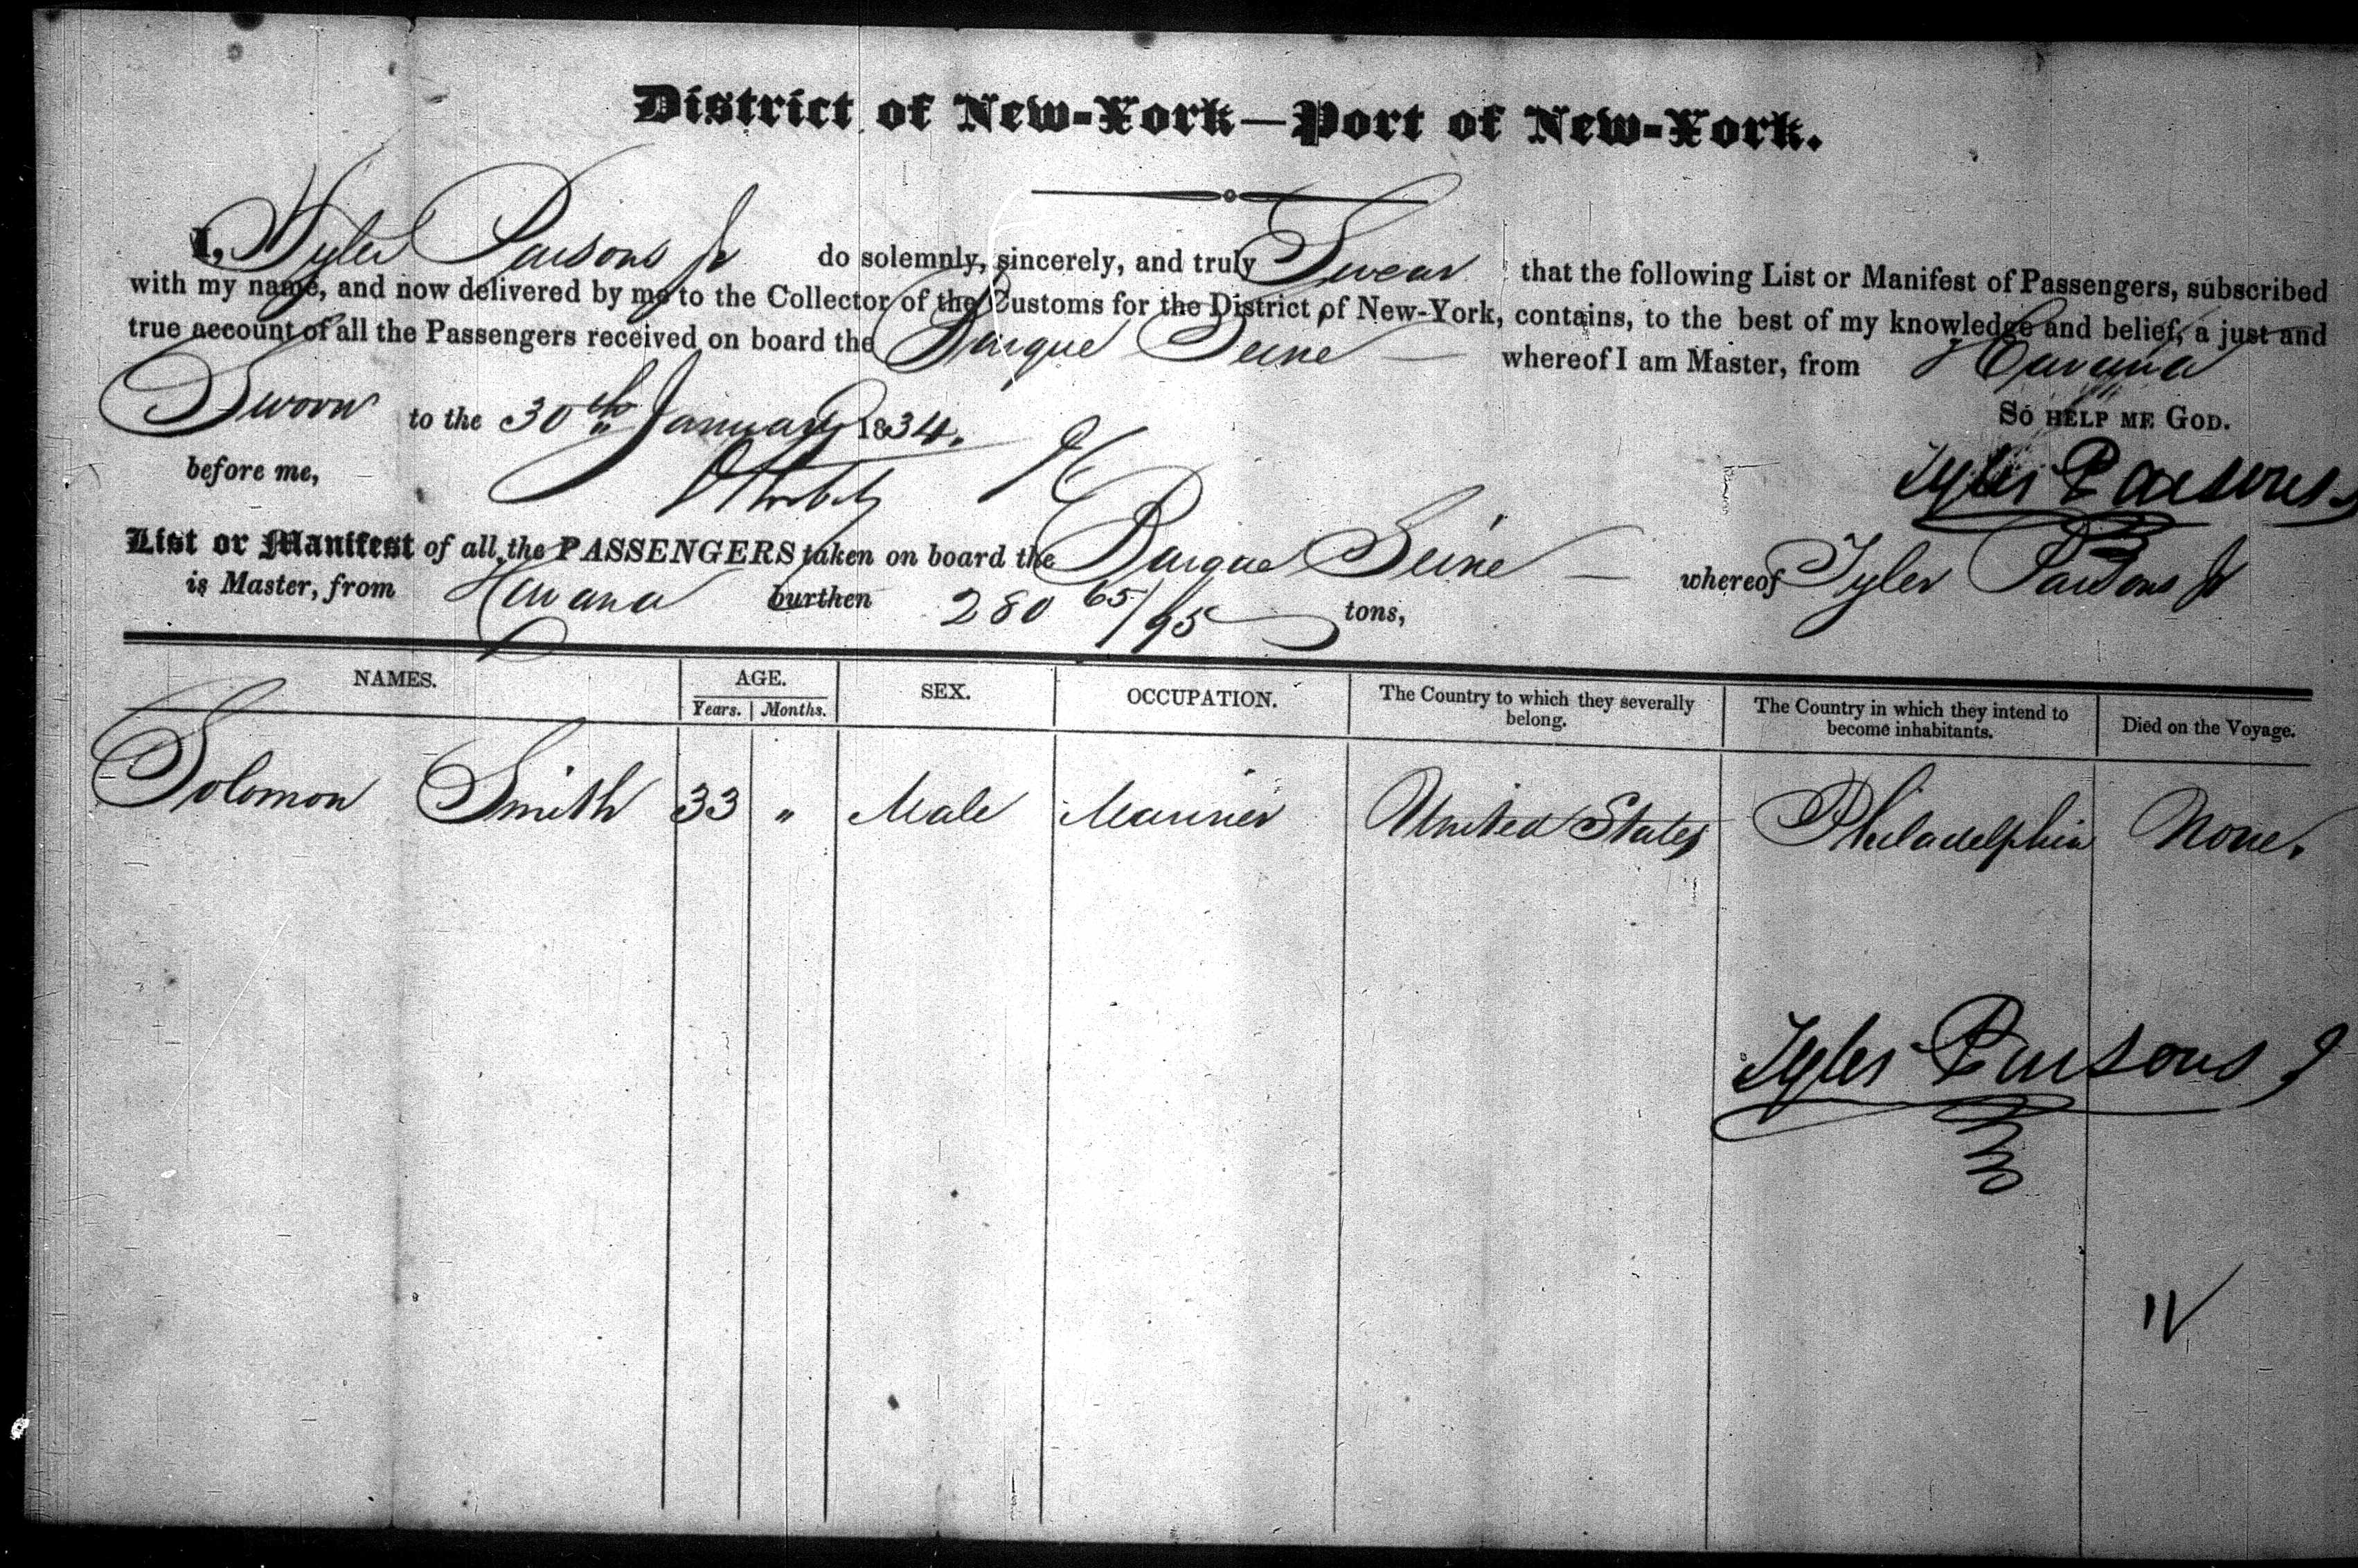 District of New-York—Port of New-York.
I, Tyler Parsons Jr do solemnly, sincerely, and truly Swear that the following List or Manifest of Passengers, subscribed
with my name, and now delivered by me to the Collector of the Customs for the District of New-York, contains, to the best of my knowledge and belief, a just and
true account of all the Passengers received on board the Barque Seine — whereof I am Master, from Havana
Sworn to the 30th January 1834. So help me God.
before me, Tyler Parsons J
List or Manifest of all the PASSENGERS taken on board the Barque Seine — whereof Tyler Parsons Jr
is Master, from Havana burthen 280 65/95 tons,
NAMES. AGE. SEX. OCCUPATION. The Country to which they severally belong. The Country in which they intend to become inhabitants. Died on the Voyage.
Years. Months.
Solomon Smith 33 " Male Mariner United States Philadelphia None.
Tyler Parsons J